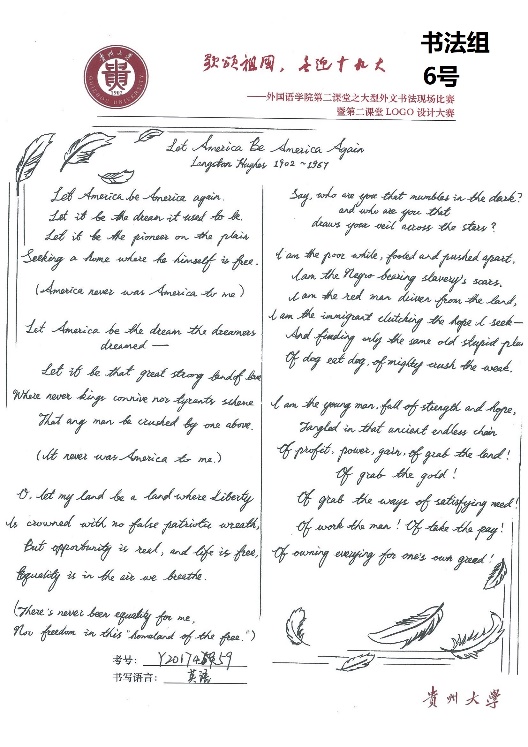 书法组
6号
贵州大学
贵
GUIZHOU UNIVERSITY
1902
歌颂祖国，喜迎十九大
——外国语学院第二课堂之大型外文书法现场比赛
暨第二课堂 LOGO 设计大赛
Let America Be America Again
Langston Hughes 1902 ~ 1967
Let America be America again.
Let it be the dream it used to be.
Let it be the pioneer on the plain
Seeking a home where he himself is free.
(America never was America to me)
Let America be the dream the dreamers
dreamed —
Let it be that great strong land of love
Where never kings connive nor tyrants scheme
That any man be crushed by one above.
(It never was America to me.)
O, let my land be a land where Liberty
Is crowned with no false patriotic wreath,
But opportunity is real, and life is free,
Equality is in the air we breathe.
(There's never been equality for me,
Nor freedom in this "homeland of the free.")
Say, who are you that mumbles in the dark?
and who are you that
draws your veil across the stars?
I am the poor white, fooled and pushed apart,
I am the Negro bearing slavery's scars.
I am the red man driven from the land,
I am the immigrant clutching the hope I seek—
And finding only the same old stupid plan
Of dog eat dog, of mighty crush the weak.
I am the young man, full of strength and hope,
Tangled in that ancient endless chain
Of profit, power, gain, of grab the land!
Of grab the gold!
Of grab the ways of satisfying need!
Of work the men! Of take the pay!
Of owning everying for one's own greed!
考号： Y20174 59
书写语言： 英语
贵州大学